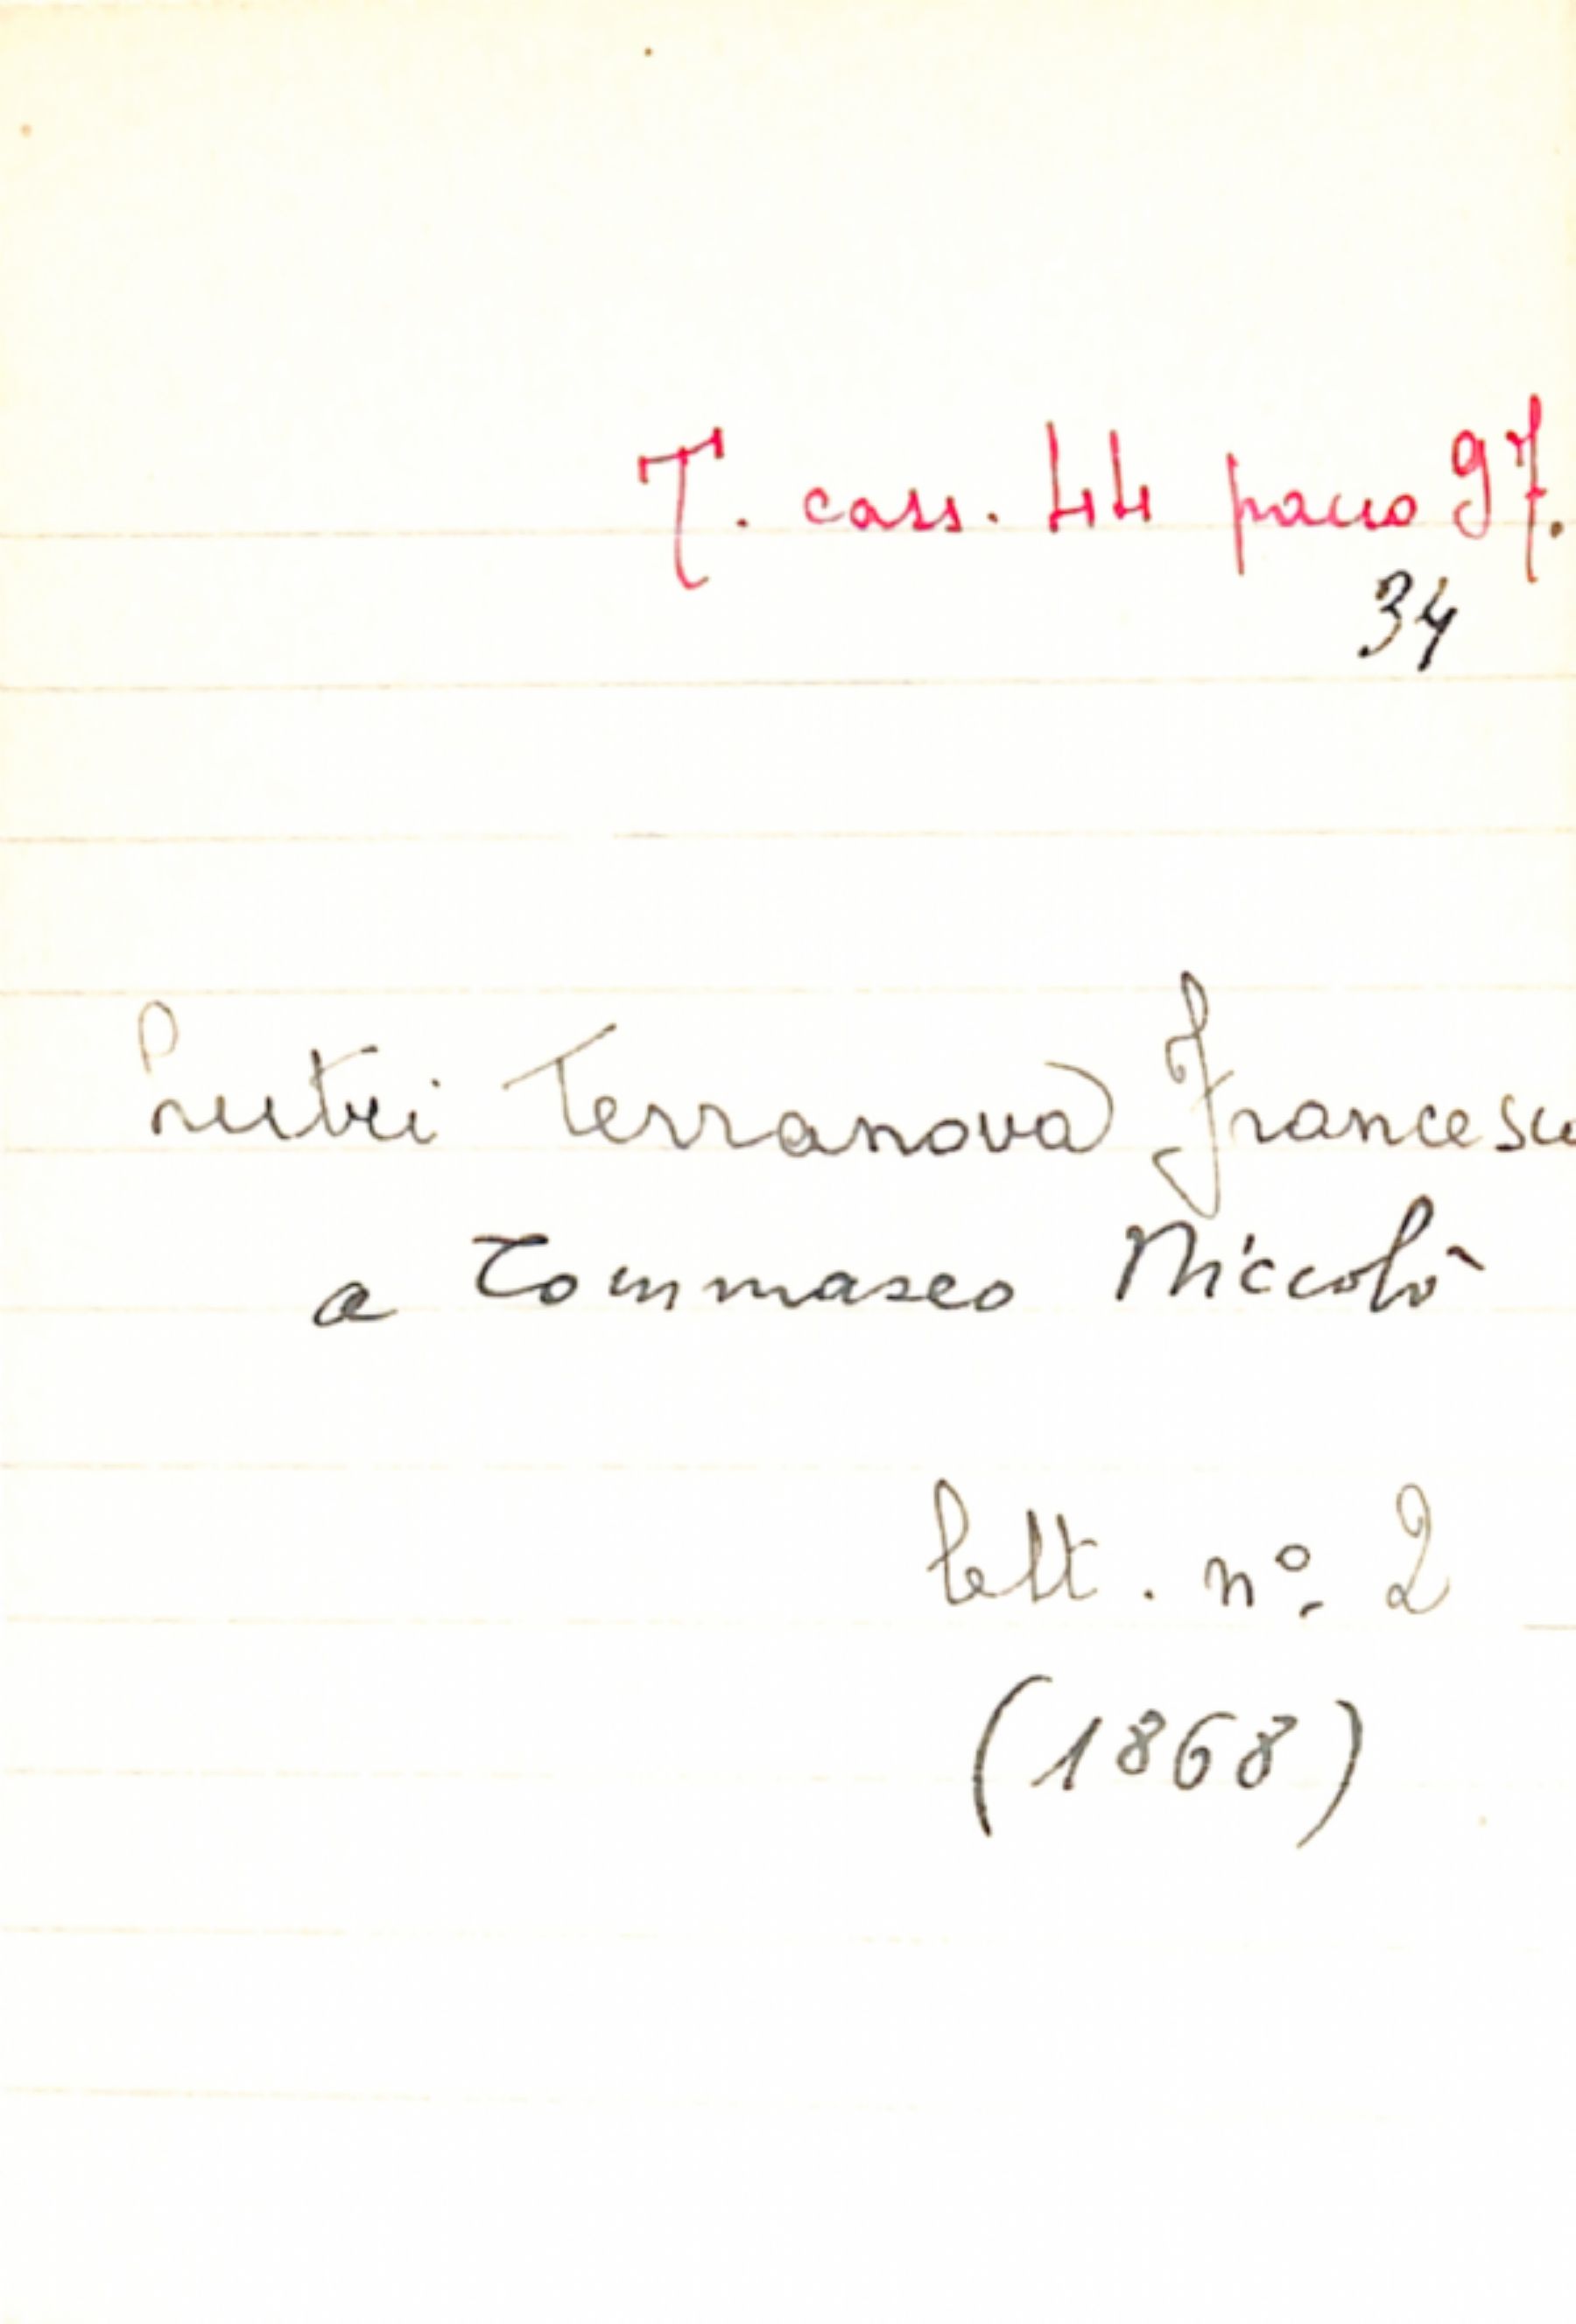 T. cass. 44 pacco 97.
34
Terranova Francesc
a Tommaseo Niccolò
lett. nº. 2
(1868)